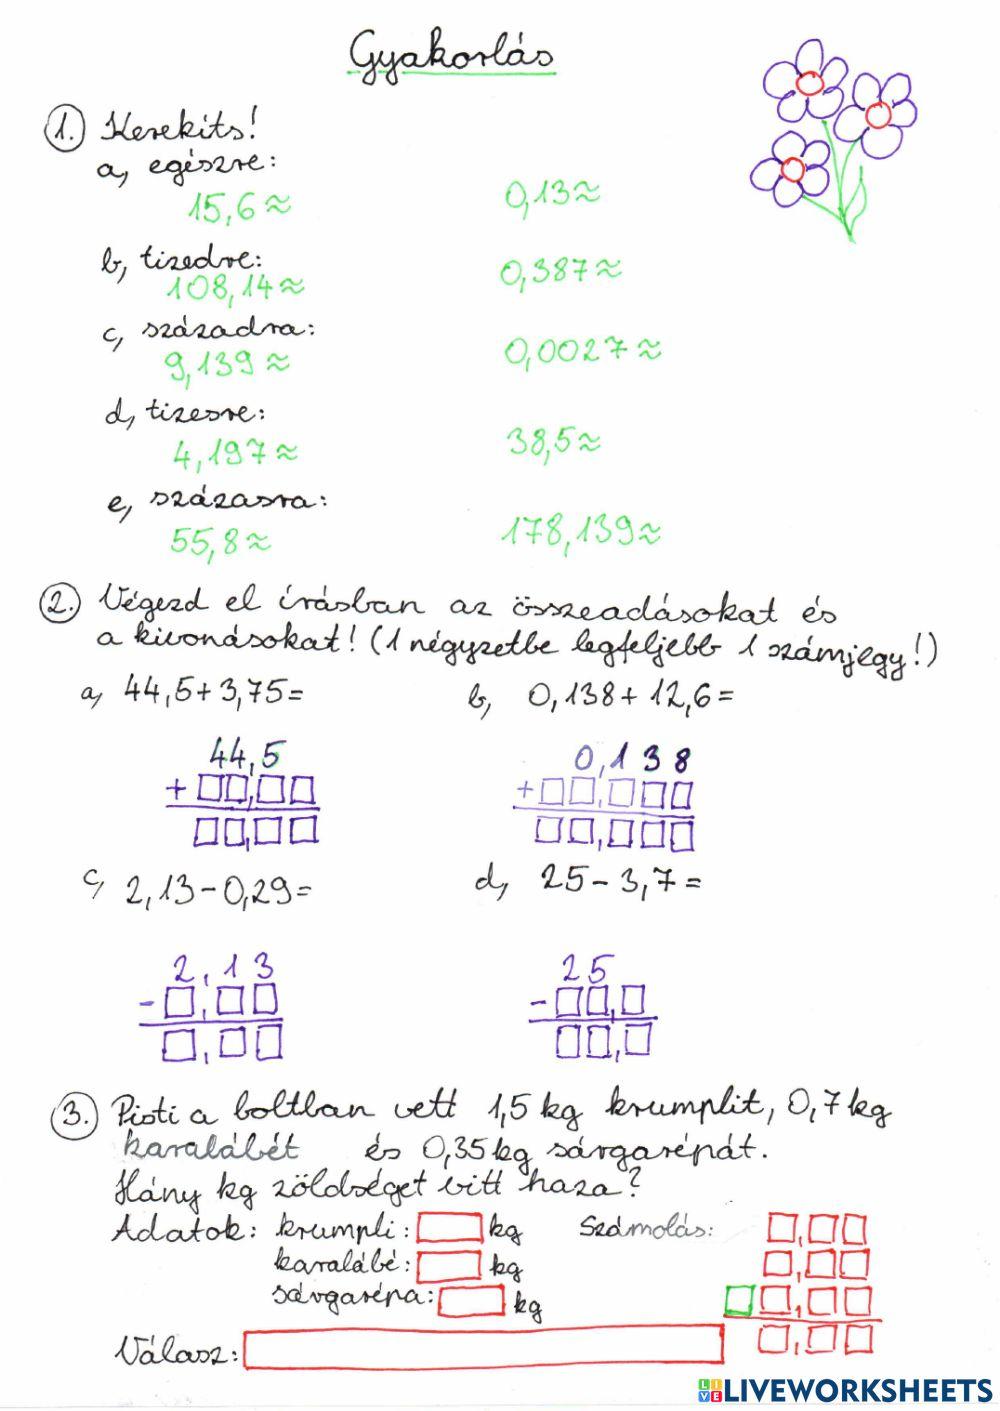 Gyakorlás
1. Kerekíts!
a, egészre:
15,6≈ 0,13≈
b, tizedre:
108,14≈ 0,387≈
c, századra:
9,139≈ 0,0027≈
d, tizesre:
4,197≈ 38,5≈
e, százasra:
55,8≈ 178,139≈
2. Végezd el írásban az összeadásokat és
a kivonásokat! (1 négyzetbe legfeljebb 1 számjegy!)
a, 44,5+3,75= b, 0,138+12,6=
44,5 0,138
+ , + ,
, ,
c, 2,13-0,29= d, 25-3,7=
2,13 25
- , - ,
, ,
3. Pisti a boltban vett 1,5 kg krumplit, 0,7 kg
karalábét és 0,35 kg sárgarépát.
Hány kg zöldséget vitt haza?
Adatok: krumpli: kg Számolás: ,
karalábé: kg ,
sárgarépa: kg ,
Válasz: ,
LIVE LIVEWORKSHEETS